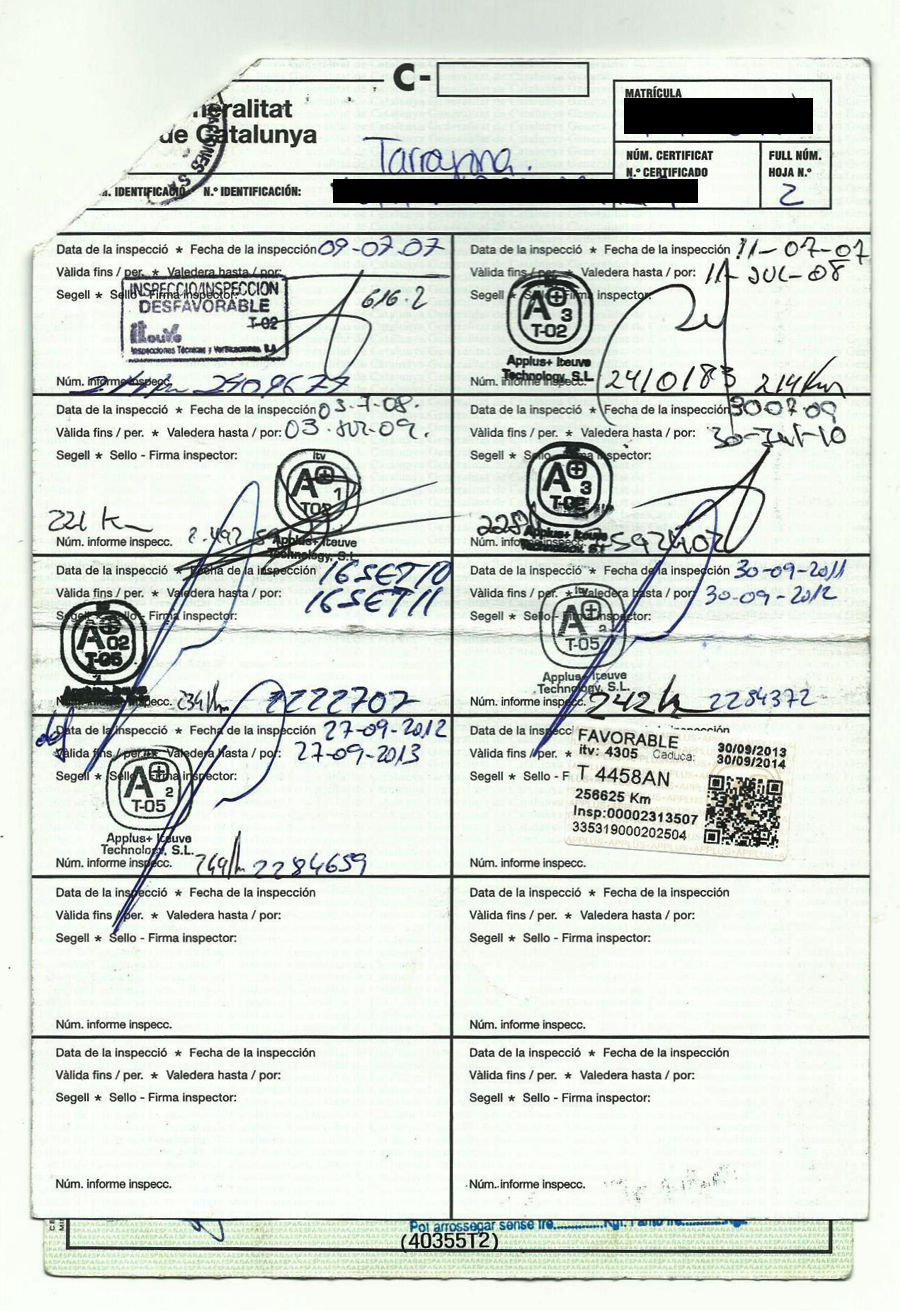 C-
neralitat
de Catalunya
Tarragona.
MATRÍCULA
NÚM. CERTIFICAT
N.º CERTIFICADO
FULL NÚM.
HOJA N.º
2
. IDENTIFICACIÓ N.º IDENTIFICACIÓN:
Data de la inspecció * Fecha de la inspección 09-07-07
Vàlida fins / per. * Valedera hasta / por:
Segell * Sello - Firma inspector:
INSPECCIO/INSPECCION
DESFAVORABLE
T-02
iteuve
Inspecciones Técnicas y Verificaciones, S.A.
616.2
Núm. informe inspecc.
Data de la inspecció * Fecha de la inspección 11-07-07
Vàlida fins / per. * Valedera hasta / por: 11-JUL-08
Segell * Sello - Firma inspector:
A+ 3
T-02
Applus+ Iteuve
Technology, S.L.
Núm. informe inspecc. 2410183 214Km
Data de la inspecció * Fecha de la inspección 03-7-08.
Vàlida fins / per. * Valedera hasta / por: 03-JUL-09.
Segell * Sello - Firma inspector:
itv
A+ 1
T02
Applus+ Iteuve
Technology, S.L.
221 Km
Núm. informe inspecc.
Data de la inspecció * Fecha de la inspección 30-07-09
Vàlida fins / per. * Valedera hasta / por: 30-Jul-10
Segell * Sello - Firma inspector:
A+ 3
T-02
Applus+ Iteuve
Technology, S.L.
Núm. informe inspecc.
Data de la inspecció * Fecha de la inspección 16SET10
Vàlida fins / per. * Valedera hasta / por: 16SET11
Segell * Sello - Firma inspector:
A+ 02
T-05
Applus+ Iteuve
Núm. informe inspecc. 234Km 2222707
Data de la inspecció * Fecha de la inspección 30-09-2011
Vàlida fins / per. * Valedera hasta / por: 30-09-2012
Segell * Sello - Firma inspector:
itv
A+ 2
T-05
Applus+ Iteuve
Technology, S.L.
Núm. informe inspecc. 242Km 2284372
Data de la inspecció * Fecha de la inspección 27-09-2012
Vàlida fins / per. * Valedera hasta / por: 27-09-2013
Segell * Sello - Firma inspector:
A+ 2
T-05
Applus+ Iteuve
Technology, S.L.
Núm. informe inspecc. 249Km 2284659
Data de la inspecció
Vàlida fins / per. *
Segell * Sello - F
FAVORABLE 30/09/2013
itv: 4305 Caduca: 30/09/2014
T 4458AN
256625 Km
Insp:00002313507
335319000202504
Núm. informe inspecc.
Data de la inspecció * Fecha de la inspección
Vàlida fins / per. * Valedera hasta / por:
Segell * Sello - Firma inspector:
Núm. informe inspecc.
Data de la inspecció * Fecha de la inspección
Vàlida fins / per. * Valedera hasta / por:
Segell * Sello - Firma inspector:
Núm. informe inspecc.
Data de la inspecció * Fecha de la inspección
Vàlida fins / per. * Valedera hasta / por:
Segell * Sello - Firma inspector:
Núm. informe inspecc.
Data de la inspecció * Fecha de la inspección
Vàlida fins / per. * Valedera hasta / por:
Segell * Sello - Firma inspector:
Núm. informe inspecc.
Pot arrossegar sense fre
(40355T2)